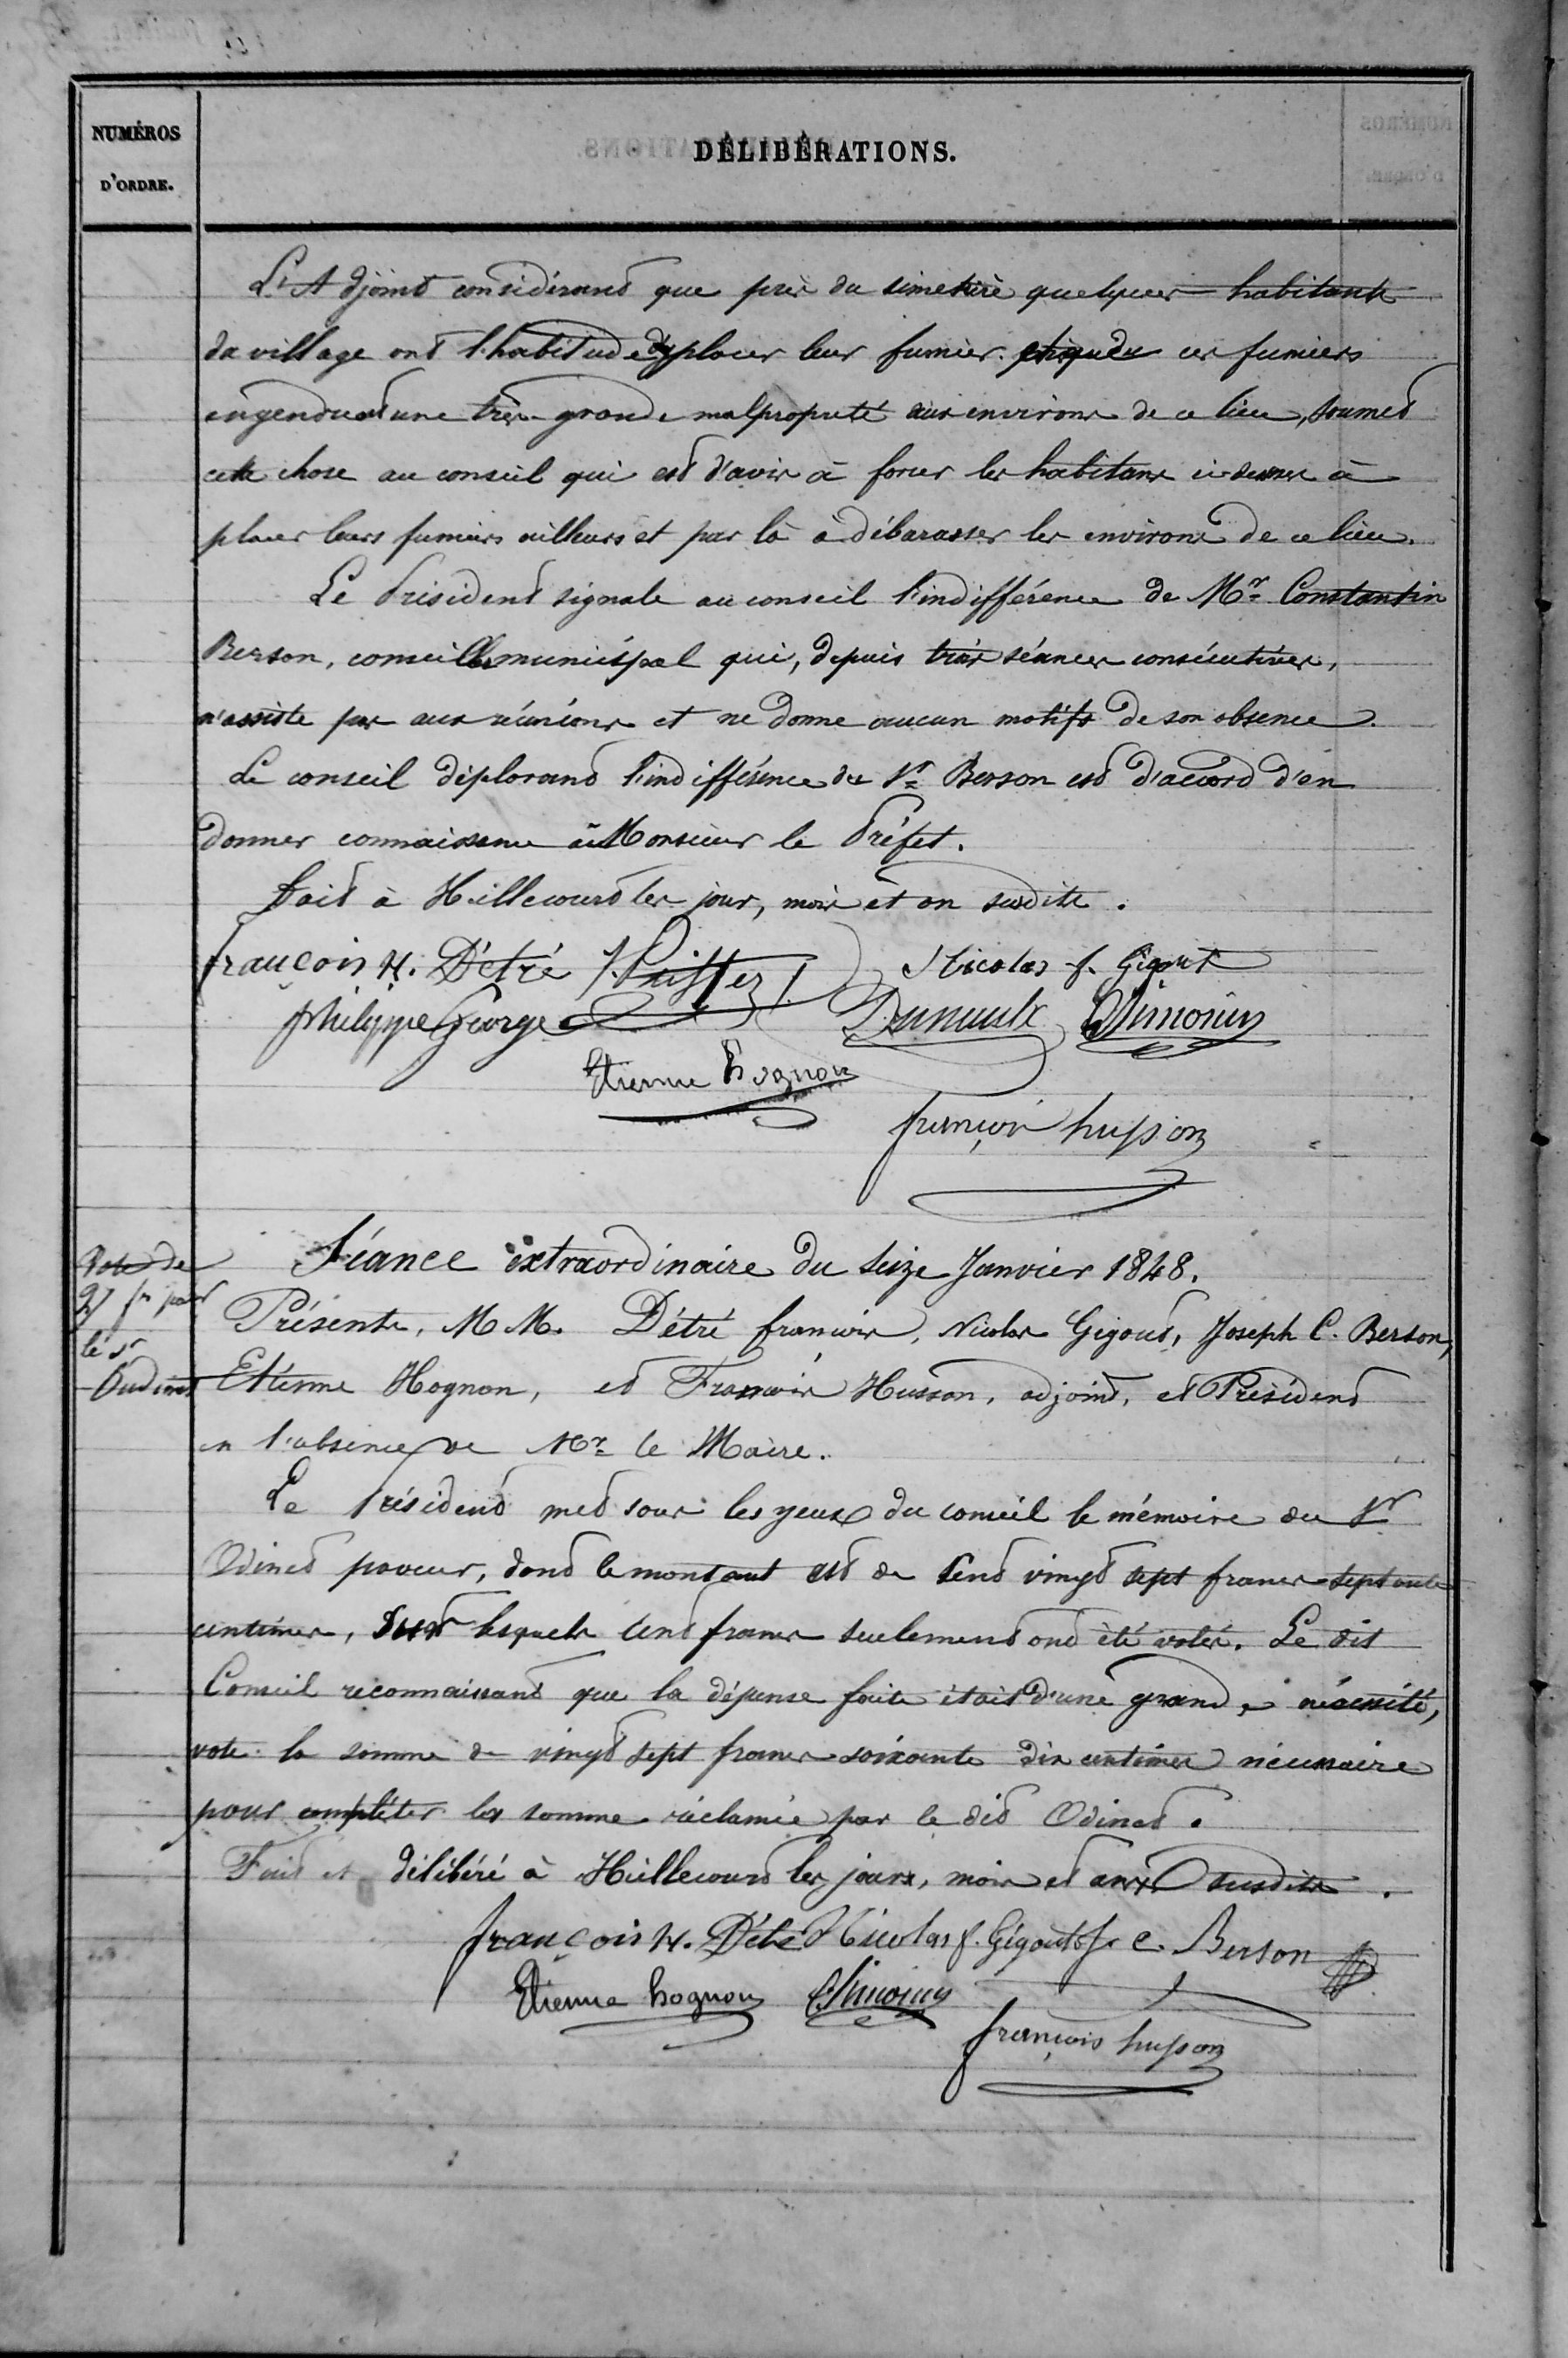 NUMÉROS
D'ORDRE.
DÉLIBÉRATIONS.
L'Adjoint considérant que près du simetière quelques habitants
du village ont l'habitude d'y placer leur fumier. et que ces fumiers
engendrent une très-grande malpropreté aux environs de ce lieu, soumet
cette chose au conseil qui est d'avis à forcer les habitans ci-dessus à
placer leurs fumiers ailleurs et par là à débarasser les environs de ce lieu.
Le Président signale au conseil l'indifférence de Mr Constantin
Berson, conseiller municipal qui, depuis trois séances consécutives,
n'assiste pas aux réunions et ne donne aucun motifs de son absence.
Le conseil déplorant l'indifférence du Sr Berson est d'accord d'en
donner connaissance à Monsieur le Préfet.
Fait à Hillecourt les jour, mois et an susdits.
françois H. Détré Nicolas f. Gigout
philippe George CSimonin
Etienne hognon
françois husson
Vote de
27 fr pour
le Sr
Oudinet
Séance extraordinaire du seize Janvier 1848.
Présents, MM. Détré françois, Nicolas Gigout, Joseph C. Berson,
Etienne Hognon, et François Husson, adjoint, et Président
en l'absence de Mr le Maire.
Le Président met sous les yeux du conseil le mémoire du Sr
Odinet paveur, dont le montant est de Cent vingt sept francs septante
centimes, sur lesquels cent francs seulement ont été votés. Le dit
Conseil reconnaissant que la dépense faite était d'une grande nécessité,
vote la somme de vingt sept francs soixante dix centimes nécessaire
pour compléter la somme réclamée par le dit Odinet.
Fait et délibéré à Hillecourt les jours, mois et ans susdits.
françois H. Détré Nicolas f. Gégout J. C. Berson
Etienne hognon CSimonin
françois husson